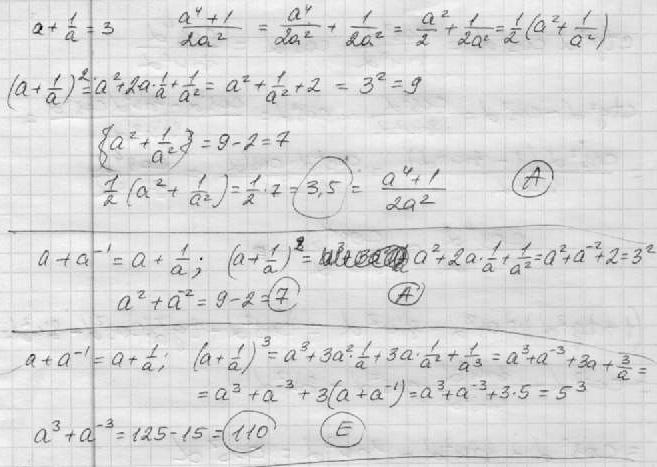 a + 1/a = 3 (a⁴+1)/(2a²) = a⁴/(2a²) + 1/(2a²) = a²/2 + 1/(2a²) = 1/2 (a² + 1/a²)
(a + 1/a)² = a² + 2a · 1/a + 1/a² = a² + 1/a² + 2 = 3² = 9
{a² + 1/a²} = 9 - 2 = 7
1/2 (a² + 1/a²) = 1/2 · 7 = 3,5 = (a⁴+1)/(2a²) A
a + a⁻¹ = a + 1/a; (a + 1/a)² = a² + 2a · 1/a + 1/a² = a² + a⁻² + 2 = 3²
a² + a⁻² = 9 - 2 = 7 A
a + a⁻¹ = a + 1/a; (a + 1/a)³ = a³ + 3a² · 1/a + 3a · 1/a² + 1/a³ = a³ + a⁻³ + 3a + 3/a =
= a³ + a⁻³ + 3(a + a⁻¹) = a³ + a⁻³ + 3 · 5 = 5³
a³ + a⁻³ = 125 - 15 = 110 E